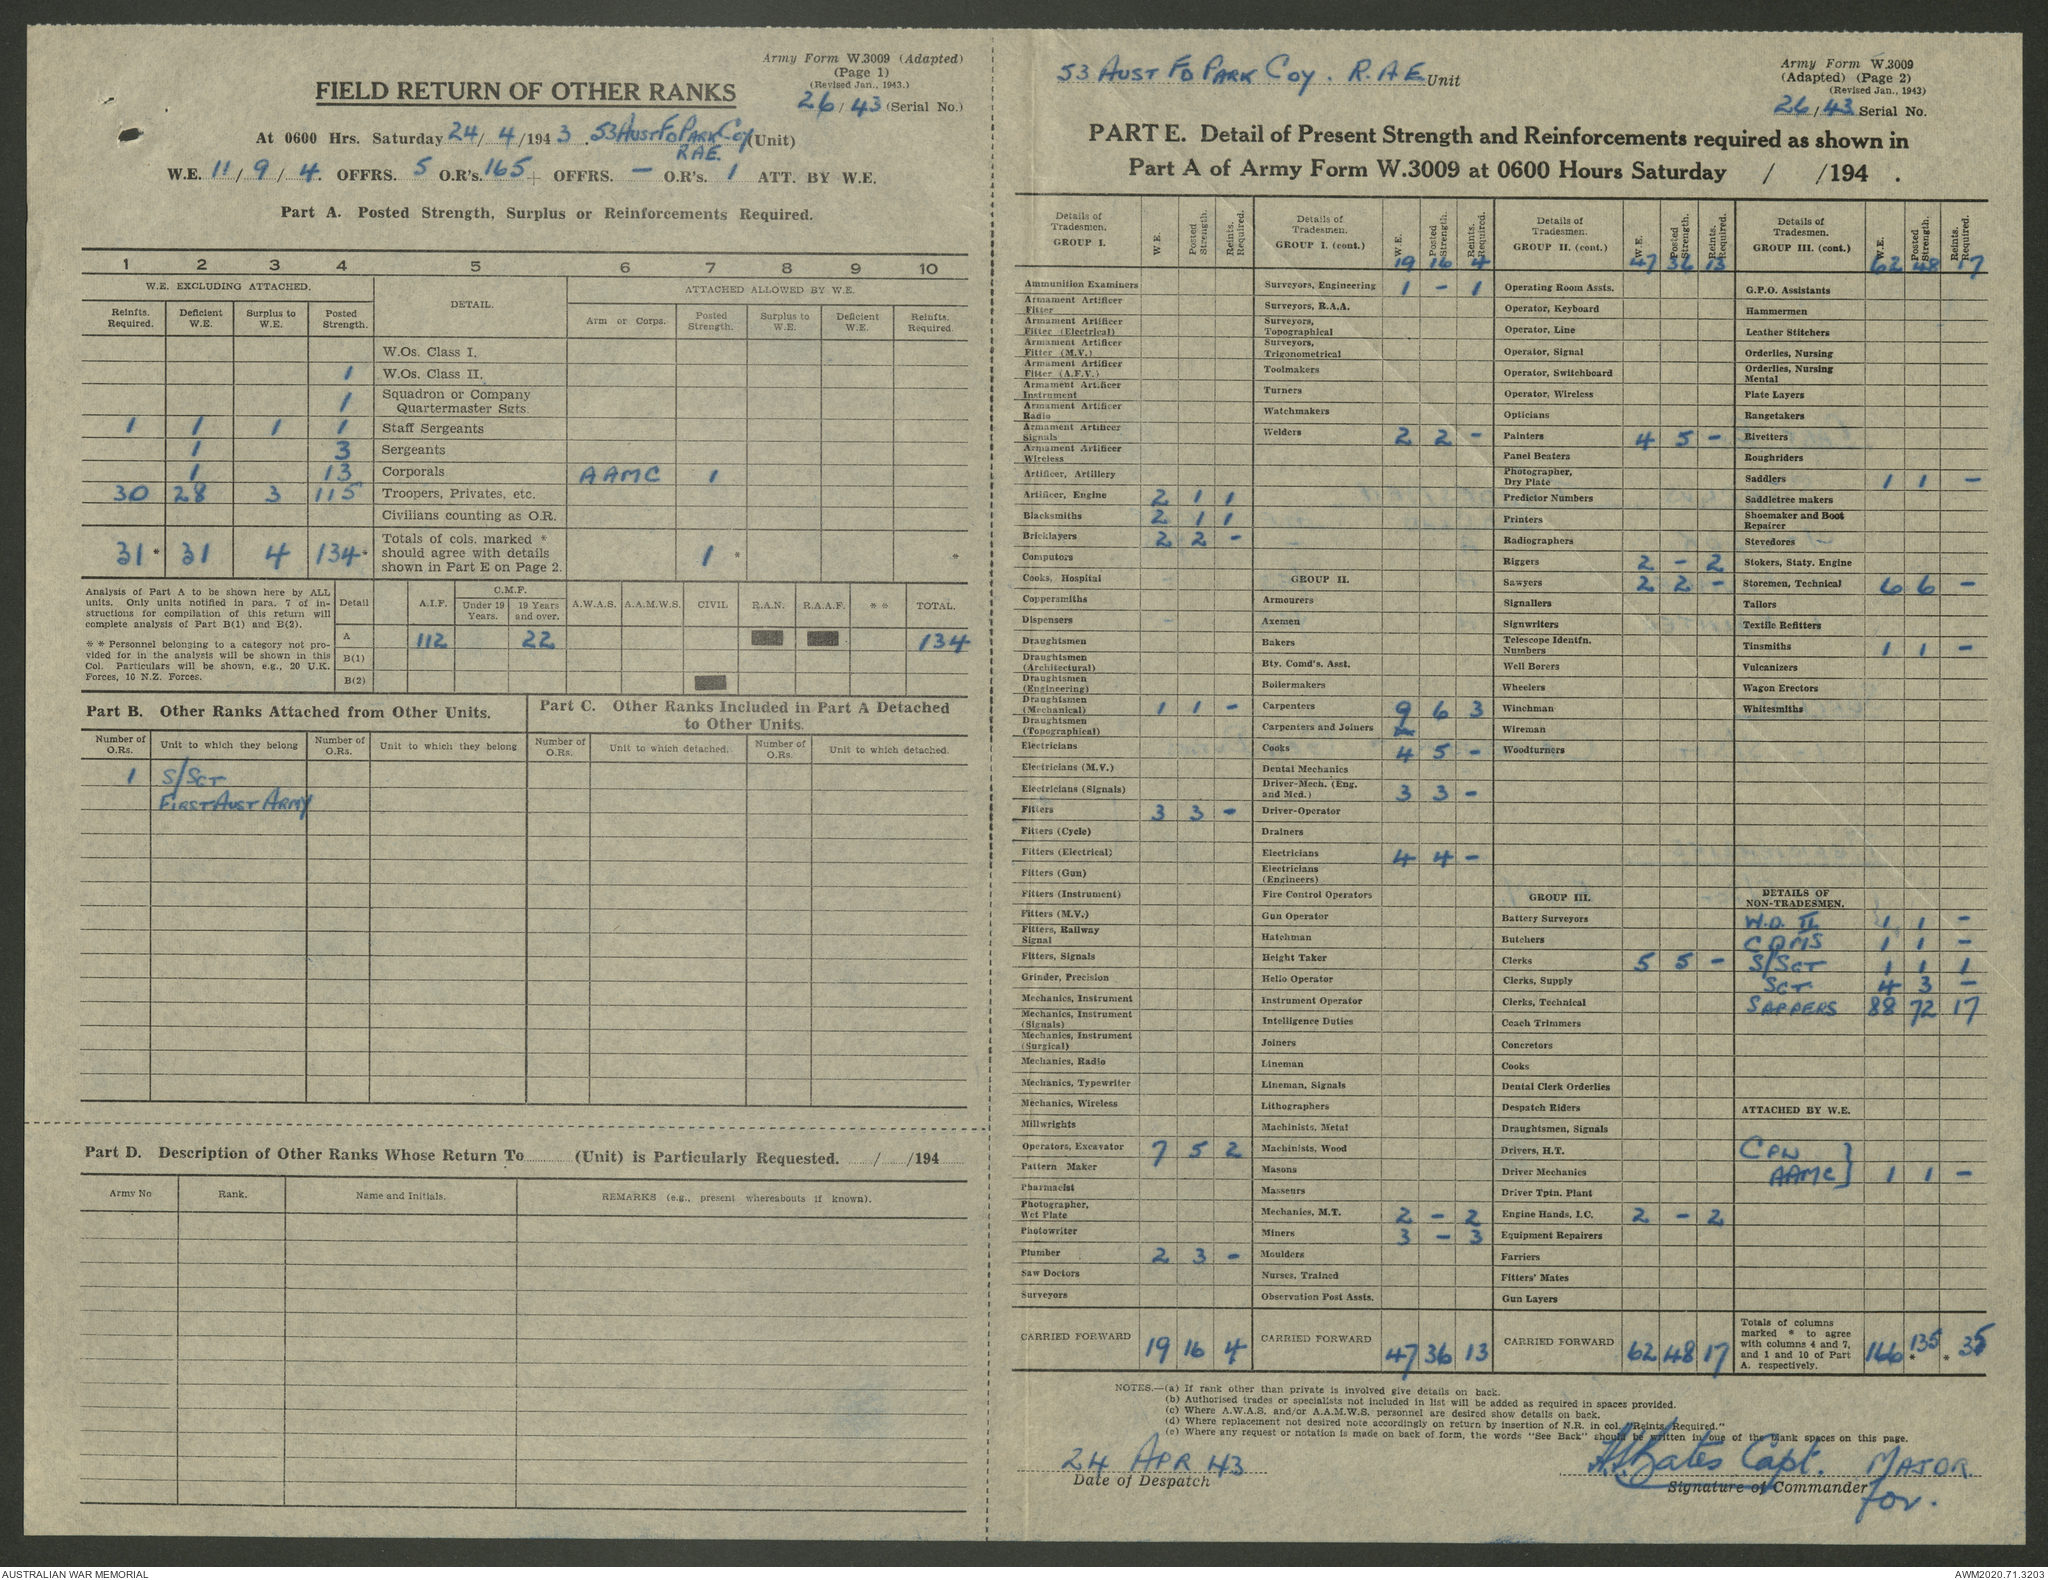 Army Form W.3009 (Adapted)
(Page 1)
(Revised Jan., 1943.)
FIELD RETURN OF OTHER RANKS
26/43 (Serial No.)
At 0600 Hrs. Saturday 24/4/1943. 53 Aust Fd Park Coy (Unit)
RAE.
W.E. 11/9/4. OFFRS. 5 O.R's. 165 + OFFRS. — O.R's. 1 ATT. BY W.E.
Part A. Posted Strength, Surplus or Reinforcements Required.
1 2 3 4 5 6 7 8 9 10
W.E. EXCLUDING ATTACHED. DETAIL. ATTACHED ALLOWED BY W.E.
Reinfts. Required. Deficient W.E. Surplus to W.E. Posted Strength. Arm or Corps. Posted Strength. Surplus to W.E. Deficient W.E. Reinfts. Required.
W.Os. Class I.
1 W.Os. Class II.
1 Squadron or Company Quartermaster Sgts.
1 1 1 1 Staff Sergeants
1 3 Sergeants
1 13 Corporals AAMC 1
30 28 3 115 Troopers, Privates, etc.
Civilians counting as O.R.
31* 31 4 134* Totals of cols. marked * should agree with details shown in Part E on Page 2. 1 * *
Analysis of Part A to be shown here by ALL
units. Only units notified in para. 7 of in-
structions for compilation of this return will
complete analysis of Part B(1) and B(2).
** Personnel belonging to a category not pro-
vided for in the analysis will be shown in this
Col. Particulars will be shown, e.g., 20 U.K.
Forces, 10 N.Z. Forces.
Detail A.I.F. C.M.F. Under 19 Years. 19 Years and over. A.W.A.S. A.A.M.W.S. CIVIL R.A.N. R.A.A.F. ** TOTAL.
A 112 22 134
B(1)
B(2)
Part B. Other Ranks Attached from Other Units.
Part C. Other Ranks Included in Part A Detached
to Other Units.
Number of O.Rs. Unit to which they belong Number of O.Rs. Unit to which they belong Number of O.Rs. Unit to which detached. Number of O.Rs. Unit to which detached.
1 S/Sgt
First Aust Army
Part D. Description of Other Ranks Whose Return To (Unit) is Particularly Requested. / /194
Army No Rank. Name and Initials. REMARKS (e.g., present whereabouts if known).
53 Aust Fd Park Coy. R.A.E. Unit
Army Form W.3009
(Adapted) (Page 2)
(Revised Jan., 1943)
26/43 Serial No.
PART E. Detail of Present Strength and Reinforcements required as shown in
Part A of Army Form W.3009 at 0600 Hours Saturday / /194 .
Details of Tradesmen. GROUP I. W.E. Posted Strength. Reints. Required.
Ammunition Examiners
Armament Artificer Fitter
Armament Artificer Fitter (Electrical)
Armament Artificer Fitter (M.V.)
Armament Artificer Fitter (A.F.V.)
Armament Artificer Instrument
Armament Artificer Radio
Armament Artificer Signals
Armament Artificer Wireless
Artificer, Artillery
Artificer, Engine 2 1 1
Blacksmiths 2 1 1
Bricklayers 2 2 -
Computors
Cooks, Hospital
Coppersmiths
Dispensers
Draughtsmen
Draughtsmen (Architectural)
Draughtsmen (Engineering)
Draughtsmen (Mechanical) 1 1 -
Draughtsmen (Topographical)
Electricians
Electricians (M.V.)
Electricians (Signals)
Fitters 3 3 -
Fitters (Cycle)
Fitters (Electrical)
Fitters (Gun)
Fitters (Instrument)
Fitters (M.V.)
Fitters, Railway Signal
Fitters, Signals
Grinder, Precision
Mechanics, Instrument
Mechanics, Instrument (Signals)
Mechanics, Instrument (Surgical)
Mechanics, Radio
Mechanics, Typewriter
Mechanics, Wireless
Millwrights
Operators, Excavator 7 5 2
Pattern Maker
Pharmacist
Photographer, Wet Plate
Photowriter
Plumber 2 3 -
Saw Doctors
Surveyors
CARRIED FORWARD 19 16 4
Details of Tradesmen. GROUP I. (cont.) W.E. Posted Strength. Reints. Required.
19 16 4
Surveyors, Engineering 1 - 1
Surveyors, R.A.A.
Surveyors, Topographical
Surveyors, Trigonometrical
Toolmakers
Turners
Watchmakers
Welders 2 2 -
GROUP II.
Armourers
Axemen
Bakers
Bty. Comd's. Asst.
Boilermakers
Carpenters 9 6 3
Carpenters and Joiners
Cooks 4 5 -
Dental Mechanics
Driver-Mech. (Eng. and Med.) 3 3 -
Driver-Operator
Drainers
Electricians 4 4 -
Electricians (Engineers)
Fire Control Operators
Gun Operator
Hatchman
Height Taker
Helio Operator
Instrument Operator
Intelligence Duties
Joiners
Lineman
Lineman, Signals
Lithographers
Machinists, Metal
Machinists, Wood
Masons
Masseurs
Mechanics, M.T. 2 - 2
Miners 3 - 3
Moulders
Nurses, Trained
Observation Post Assts.
CARRIED FORWARD 47 36 13
Details of Tradesmen. GROUP II. (cont.) W.E. Posted Strength. Reints. Required.
47 36 13
Operating Room Assts.
Operator, Keyboard
Operator, Line
Operator, Signal
Operator, Switchboard
Operator, Wireless
Opticians
Painters 4 5 -
Panel Beaters
Photographer, Dry Plate
Predictor Numbers
Printers
Radiographers
Riggers 2 - 2
Sawyers 2 2 -
Signallers
Signwriters
Telescope Identfn. Numbers
Well Borers
Wheelers
Winchman
Wireman
Woodturners
GROUP III.
Battery Surveyors
Butchers
Clerks 5 5 -
Clerks, Supply
Clerks, Technical
Coach Trimmers
Concretors
Cooks
Dental Clerk Orderlies
Despatch Riders
Draughtsmen, Signals
Drivers, H.T.
Driver Mechanics
Driver Tptn. Plant
Engine Hands, I.C. 2 - 2
Equipment Repairers
Farriers
Fitters' Mates
Gun Layers
CARRIED FORWARD 62 48 17
Details of Tradesmen. GROUP III. (cont.) W.E. Posted Strength. Reints. Required.
62 48 17
G.P.O. Assistants
Hammermen
Leather Stitchers
Orderlies, Nursing
Orderlies, Nursing Mental
Plate Layers
Rangetakers
Rivetters
Roughriders
Saddlers 1 1 -
Saddletree makers
Shoemaker and Boot Repairer
Stevedores
Stokers, Staty. Engine
Storemen, Technical 6 6 -
Tailors
Textile Refitters
Tinsmiths 1 1 -
Vulcanizers
Wagon Erectors
Whitesmiths
DETAILS OF NON-TRADESMEN.
W.O. II 1 1 -
CQMS 1 1 -
S/Sgt 1 1 1
Sgt 4 3 -
Sappers 88 72 17
ATTACHED BY W.E.
Cpl
AAMC } 1 1 -
Totals of columns marked * to agree with columns 4 and 7, and 1 and 10 of Part A. respectively. 166 135 * * 35
NOTES.—(a) If rank other than private is involved give details on back.
(b) Authorised trades or specialists not included in list will be added as required in spaces provided.
(c) Where A.W.A.S. and/or A.A.M.W.S. personnel are desired show details on back.
(d) Where replacement not desired note accordingly on return by insertion of N.R. in col. "Reints. Required."
(e) Where any request or notation is made on back of form, the words "See Back" should be written in one of the blank spaces on this page.
24 APR 43
Date of Despatch
Bates Capt. MAJOR
Signature of Commander
for.
AUSTRALIAN WAR MEMORIAL
AWM2020.71.3203